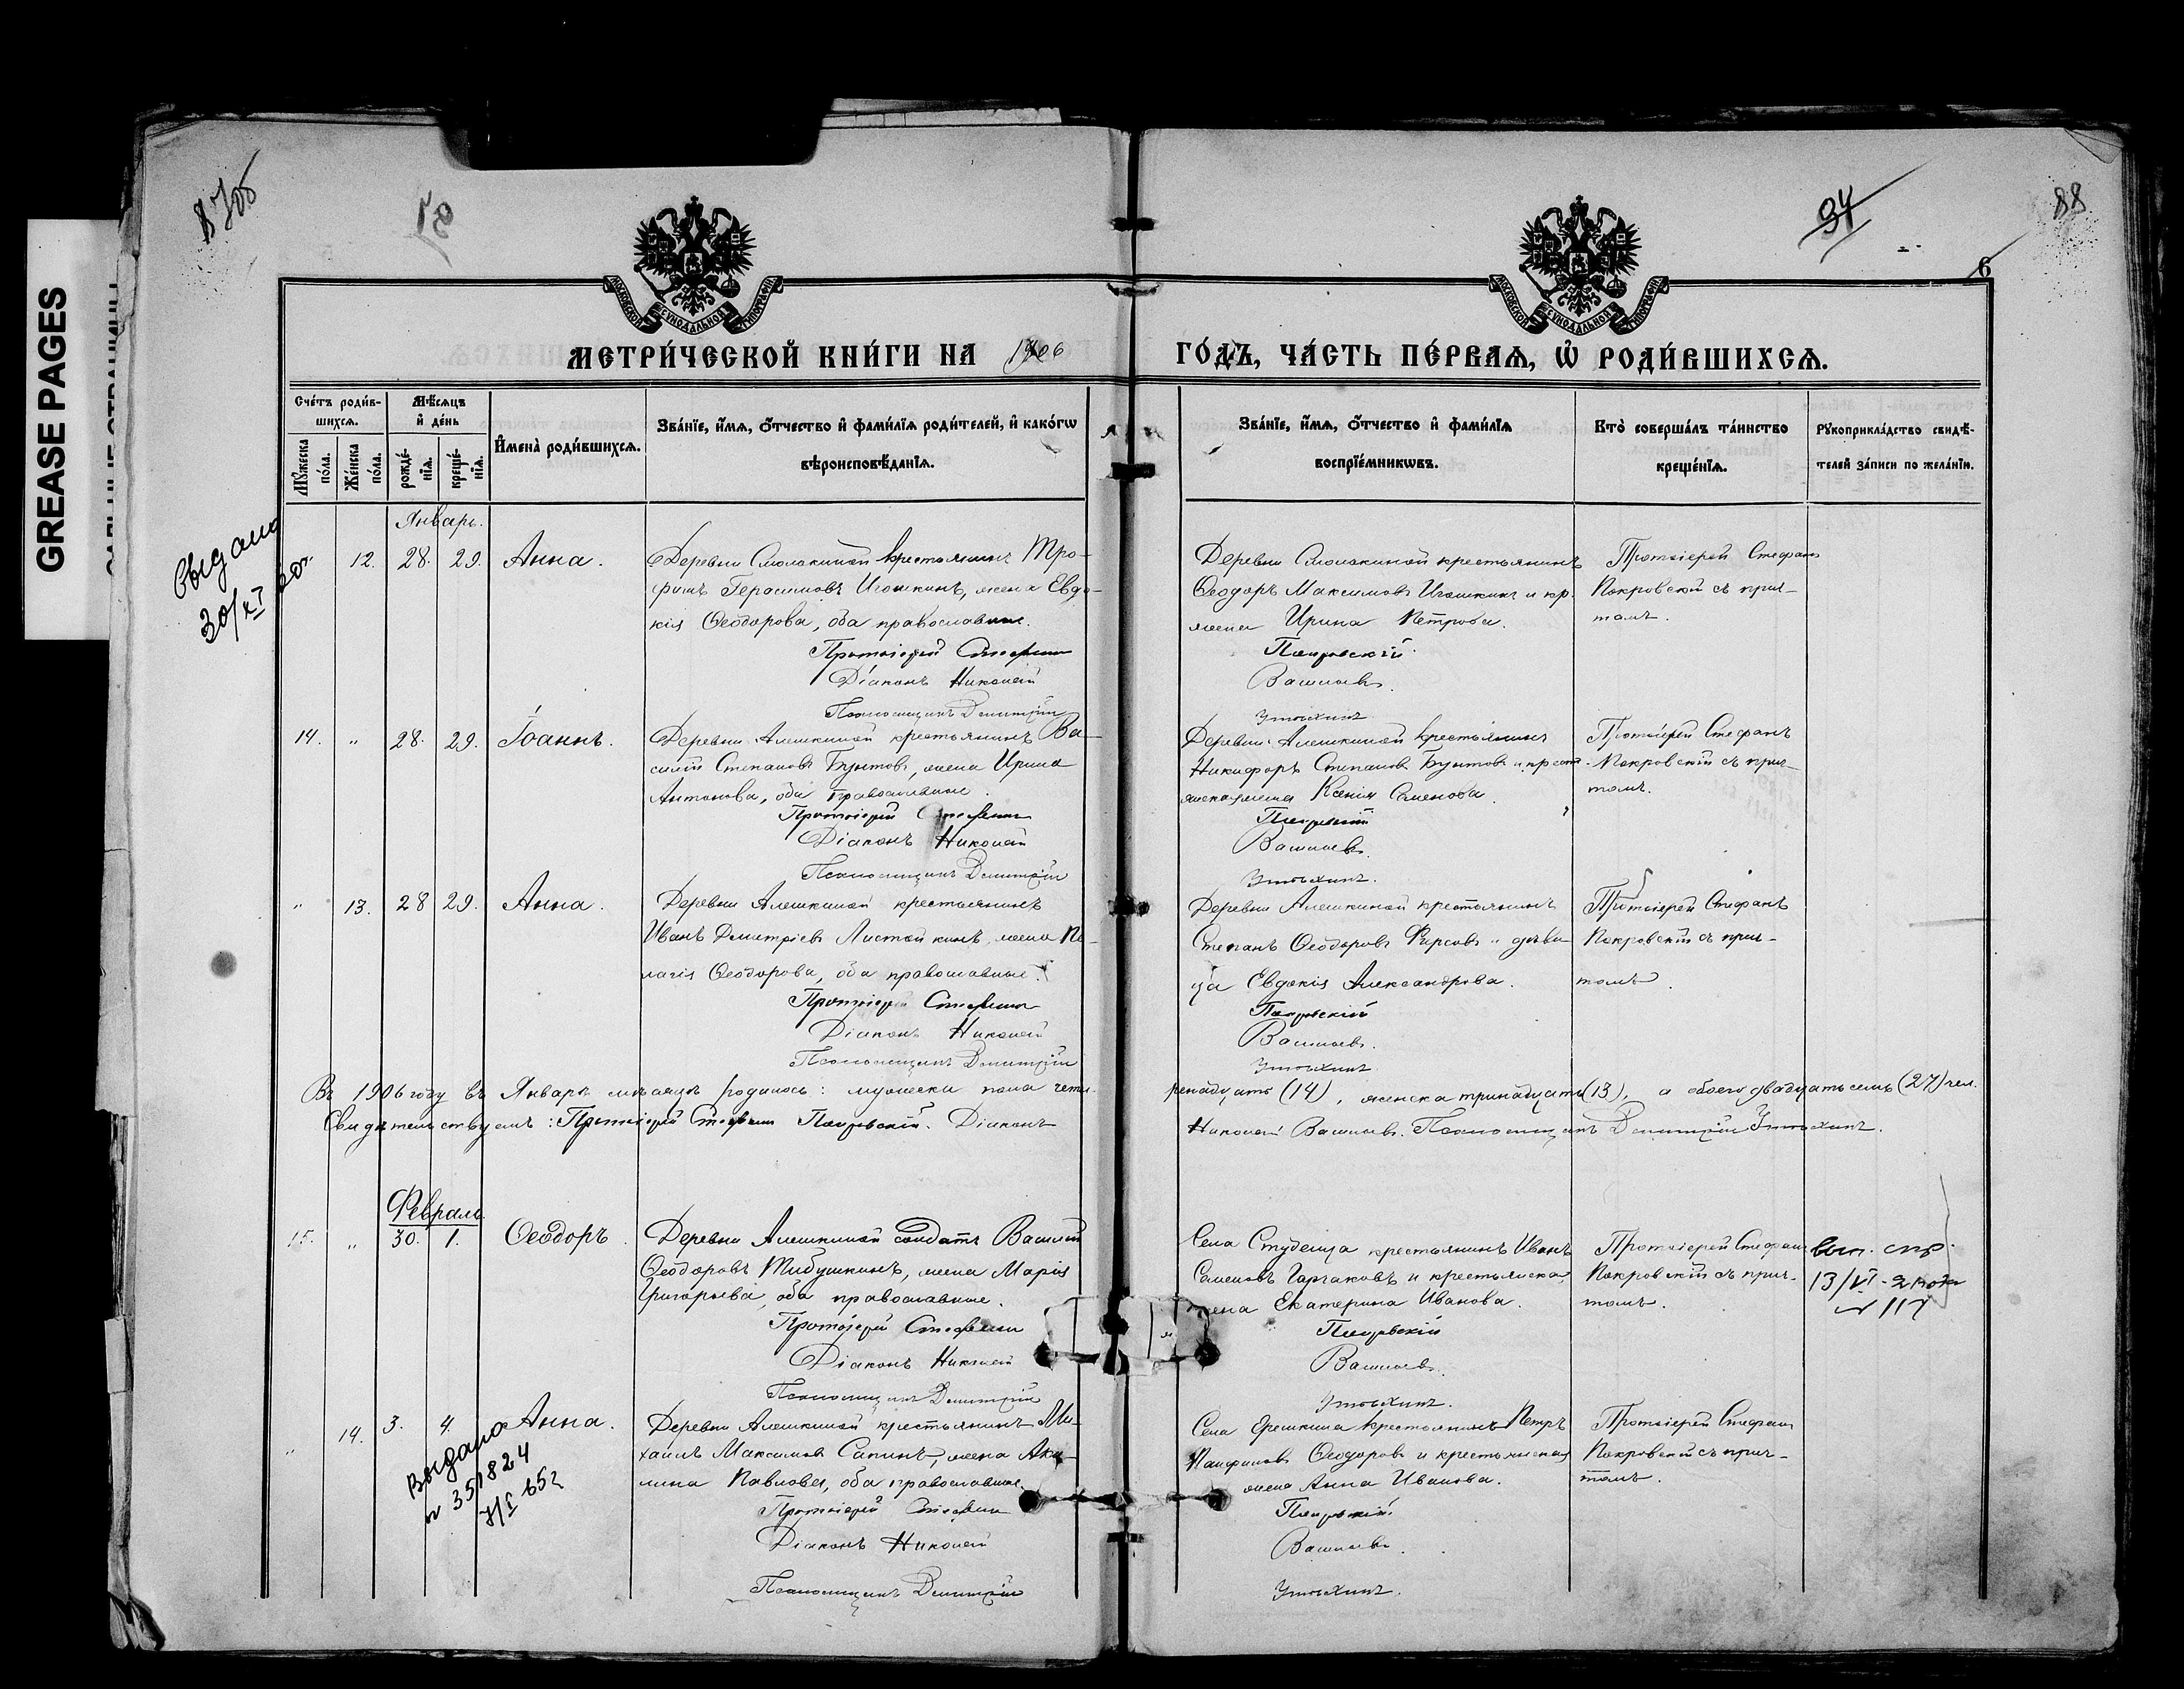 GREASE PAGES
870б
88
6
МОСКОВСКОЙ СѴНОДАЛЬНОЙ ТИПОГРАФІИ
МОСКОВСКОЙ СѴНОДАЛЬНОЙ ТИПОГРАФІИ
МЕТРИ́ЧЕСКОЙ КНИ́ГИ НА 1906 ГО́ДЪ, ЧА́СТЬ ПЕ́РВАѦ, Ѡ҆ РОДИ́ВШИХСѦ.
Сче́тъ роди́в-
шихсѧ.
Мꙋ́жеска по́ла.
Же́нска по́ла.
Мѣ́сѧцъ
и҆ де́нь
рожде́-
нїѧ.
креще́-
нїѧ.
И҆мена̀ роди́вшихсѧ.
Зва́нїе, и҆́мѧ, о҆́тчество и҆ фами́лїѧ роди́телей, и҆ како́гѡ
вѣроисповѣ́данїѧ.
Зва́нїе, и҆́мѧ, о҆́тчество и҆ фами́лїѧ
воспрїе́мникѡвъ.
Кто̀ соверша́лъ та́инство
креще́нїѧ.
Рꙋкоприкла́дство свидѣ́-
телей за́писи по жела́нїю.
Выдано
30/XI
Январь.
12. 28. 29. Анна.
Деревни Смолкиной крестьянинъ Тро-
фимъ Герасимовъ Игошкинъ, жена Евдо-
кія Ѳеодорова, оба православные.
Протоіерей Стефанъ
Діаконъ Николай
Псаломщикъ Димитрій
Ѳеодоръ Максимовъ Игошкинъ и кр.
жена Ирина Петрова.
Покровскій.
Васильевъ.
Утѣхинъ
Протоіерей Стефанъ
Покровскій съ прич-
томъ.
14. " 28. 29. Іоаннъ.
Деревни Алешкиной крестьянинъ Ва-
силій Степановъ Бунтовъ, жена Ирина
Антонова, оба православные.
Протоіерей Стефанъ
Діаконъ Николай
Псаломщикъ Димитрій
Деревни Алешкиной крестьянинъ
Никифоръ Степановъ Бунтовъ и крест-
жена Ксенія Семенова.
Покровскій
Васильевъ.
Утѣхинъ.
Протоіерей Стефанъ
Покровскій съ прич-
томъ.
" 13. 28 29. Анна.
Деревни Алешкиной крестьянинъ
Иванъ Димитріевъ Листошкинъ, жена Пе-
лагія Ѳеодорова, оба православные.
Протоіерей Стефанъ
Діаконъ Николай
Псаломщикъ Димитрій
Деревни Алешкиной крестьянинъ
Степанъ Ѳеодоровъ Фирсовъ и дѣви-
ца Евдокія Александрова.
Покровскій
Васильевъ.
Утѣхинъ
Протоіерей Стефанъ
Покровскій съ прич-
томъ.
Въ 1906 году въ Январѣ мѣсяцѣ родилось: мужеска пола четы-
рнадцать (14), женска тринадцать (13), а обоего двадцать семь (27) чел.
Свидѣтельствуемъ: Протоіерей Стефанъ Покровскій. Діаконъ
Николай Васильевъ. Псаломщикъ Димитрій Утѣхинъ.
Февраль
15. " 30. 1. Ѳеодоръ.
Деревни Алешкиной солдатъ Василій
Ѳеодоровъ Тибушкинъ, жена Марія
Григорьева, оба православные.
Протоіерей Стефанъ
Діаконъ Николай
Псаломщикъ Димитрій
Села Студенца крестьянинъ Иванъ
Семеновъ Горчаковъ и крестьянская
жена Екатерина Иванова.
Покровскій
Васильевъ.
Утѣхинъ.
Протоіерей Стефанъ
Покровскій съ прич-
томъ.
13/VI
" 14. 3. 4. Анна.
Выдано
№ 351824
65г
Деревни Алешкиной крестьянинъ Ми-
хаилъ Максимовъ Сапинъ, жена Аку-
лина Павлова, оба православные.
Протоіерей Стефанъ
Діаконъ Николай
Псаломщикъ Димитрій
Села крестьянинъ Петръ
Ѳеодоровъ и крестьянская
жена Анна Иванова.
Покровскій.
Васильевъ.
Утѣхинъ.
Протоіерей Стефанъ
Покровскій съ прич-
томъ.